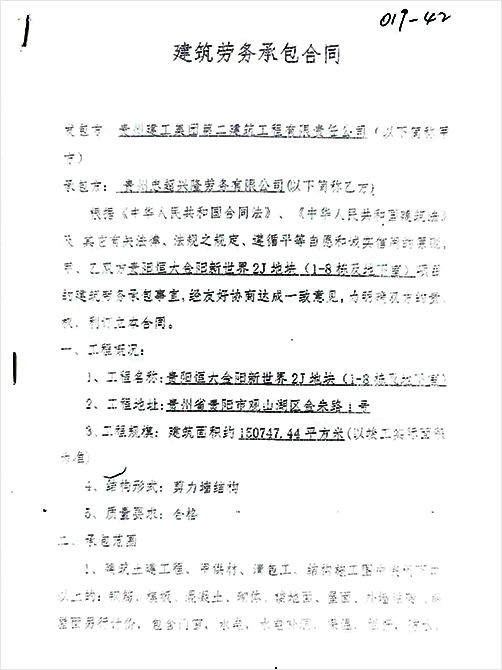 019-42
建筑劳务承包合同
发包方：贵州建工集团第二建筑工程有限责任公司（以下简称甲
方）
承包方：贵州忠超兴隆劳务有限公司(以下简称乙方)
根据《中华人民共和国合同法》、《中华人民共和国建筑法》
及其它有关法律、法规之规定、遵循平等自愿和诚实信用的原则，
甲、乙双方贵阳恒大金阳新世界2J地块（1-8栋及地下室）项目
的建筑劳务承包事宜，经友好协商达成一致意见，为明确双方的责、
权、利订立本合同。
一、工程概况：
1、工程名称：贵阳恒大金阳新世界2J地块（1-8栋及地下室）
2、工程地址：贵州省贵阳市观山湖区金朱路1号
3、工程规模：建筑面积约150747.44平方米(以竣工实际面积
为准)
4、结构形式：剪力墙结构
5、质量要求：合格
二、承包范围
1、建筑土建工程、甲供材、清包工、结构施工图中
以上的：钢筋、模板、混凝土、砌体、楼地面、屋面、外墙
屋面另行计价，包含门窗、水电、水电补洞、保温、 防水、